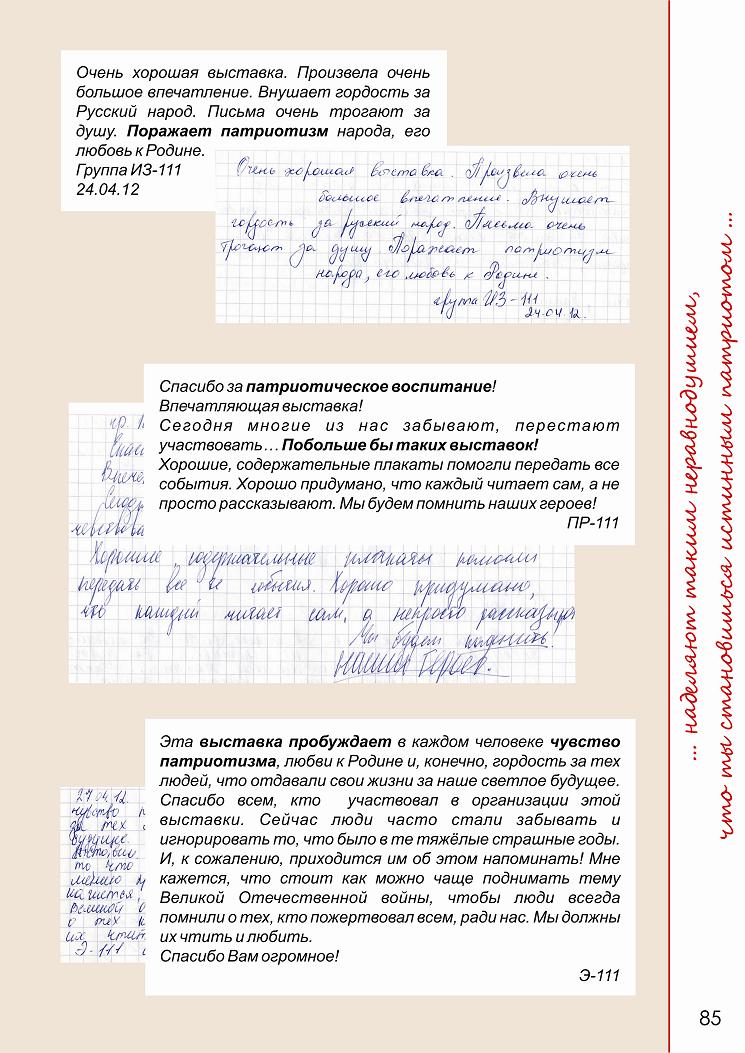 Очень хорошая выставка. Произвела очень
большое впечатление. Внушает гордость за
Русский народ. Письма очень трогают за
душу. Поражает патриотизм народа, его
любовь к Родине.
Группа ИЗ-111
24.04.12
Очень хорошая выставка. Произвела очень
большое впечатление. Внушает
гордость за русский народ. Письма очень
трогают за душу Поражает патриотизм
народа, его любовь к Родине.
группа ИЗ-111
24.04.12.
Спасибо за патриотическое воспитание!
Впечатляющая выставка!
Сегодня многие из нас забывают, перестают
участвовать... Побольше бы таких выставок!
Хорошие, содержательные плакаты помогли передать все
события. Хорошо придумано, что каждый читает сам, а не
просто рассказывают. Мы будем помнить наших героев!
ПР-111
Хорошие, содержательные плакаты помогли
передать все события. Хорошо придумано,
что каждый читает сам, а непросто
Мы будем помнить
наших героев.
Эта выставка пробуждает в каждом человеке чувство
патриотизма, любви к Родине и, конечно, гордость за тех
людей, что отдавали свои жизни за наше светлое будущее.
Спасибо всем, кто участвовал в организации этой
выставки. Сейчас люди часто стали забывать и
игнорировать то, что было в те тяжёлые страшные годы.
И, к сожалению, приходится им об этом напоминать! Мне
кажется, что стоит как можно чаще поднимать тему
Великой Отечественной войны, чтобы люди всегда
помнили о тех, кто пожертвовал всем, ради нас. Мы должны
их чтить и любить.
Спасибо Вам огромное!
Э-111
27.04.12.
чувство
за тех
будущее.
то, что
о тех
их чтит
Э-111
... наделяют таким неравнодушием,
что ты становишься истинным патриотом ...
85